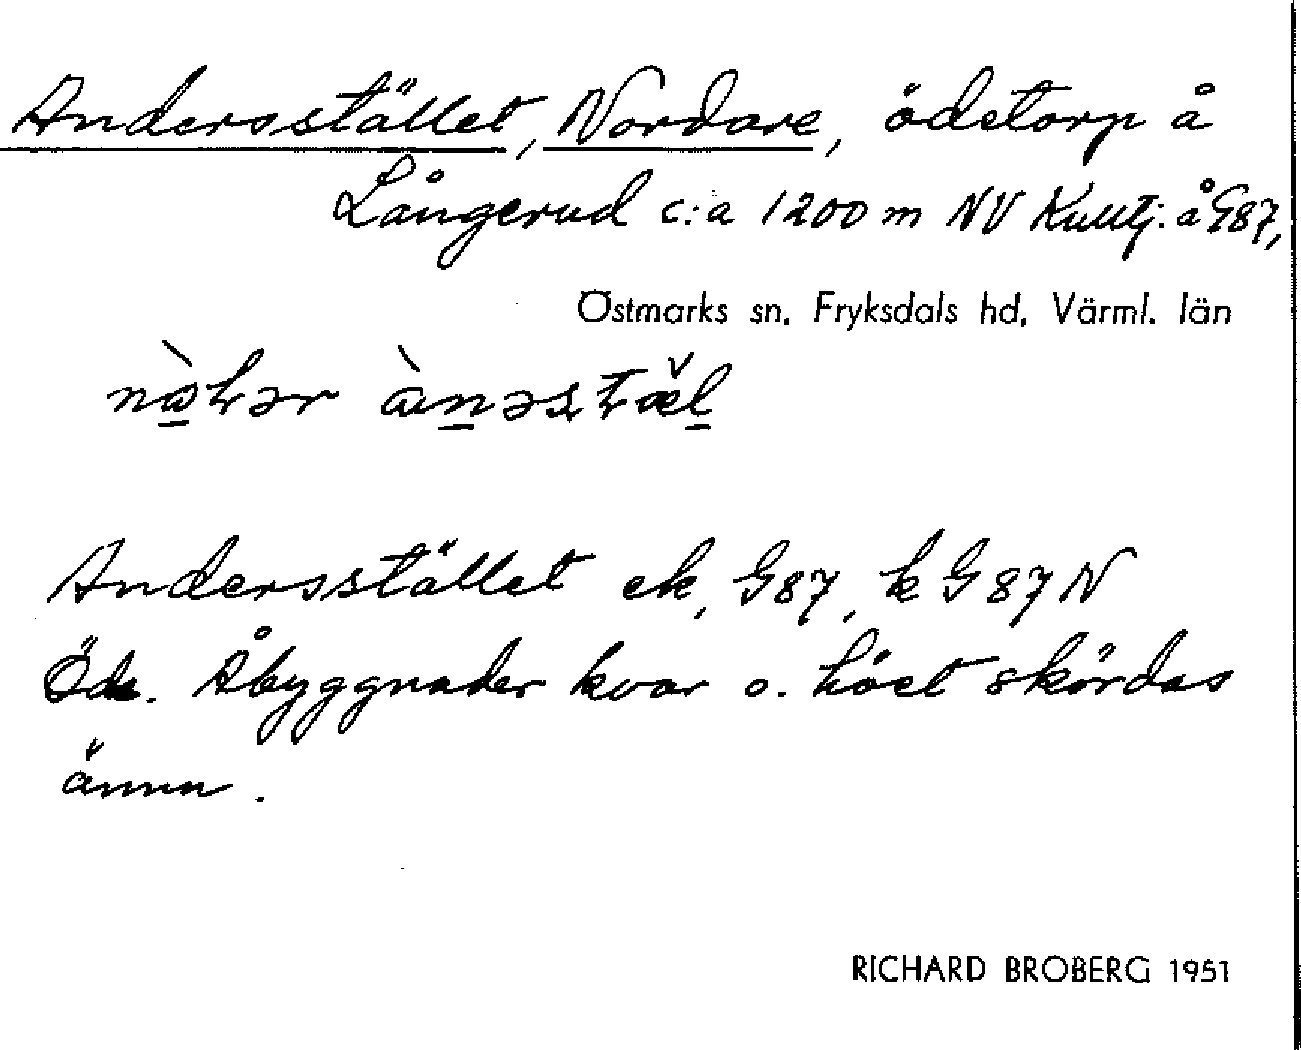 Andersstället, Nordare, ödetorp å
Långerud c:a 1200 m NV Kulltj: å G87,
Östmarks sn. Fryksdals hd, Värml. län
Andersstället ek, G87, k G87N
Öde. Åbyggnader kvar o. höet skördas
ännu.
RICHARD BROBERG 1951